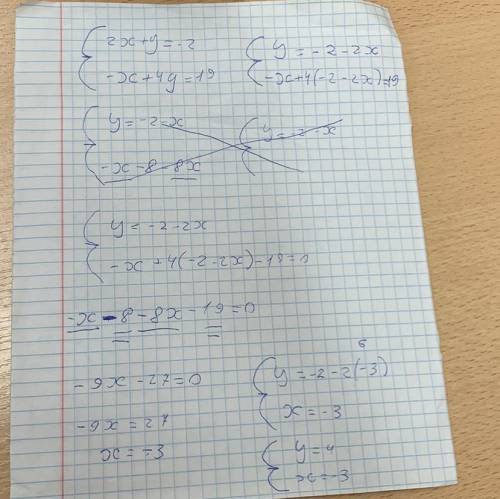 {2x+y=-2
{-x+4y=19
{y=-2-2x
{-x+4(-2-2x)=19
{y=-2-x
{-x-8-8x
{y=-2-x
{y=-2-2x
{-x+4(-2-2x)-19=0
-x-8-8x-19=0
-9x-27=0
-9x=27
x=-3
6
{y=-2-2(-3)
{x=-3
{y=4
{x=-3